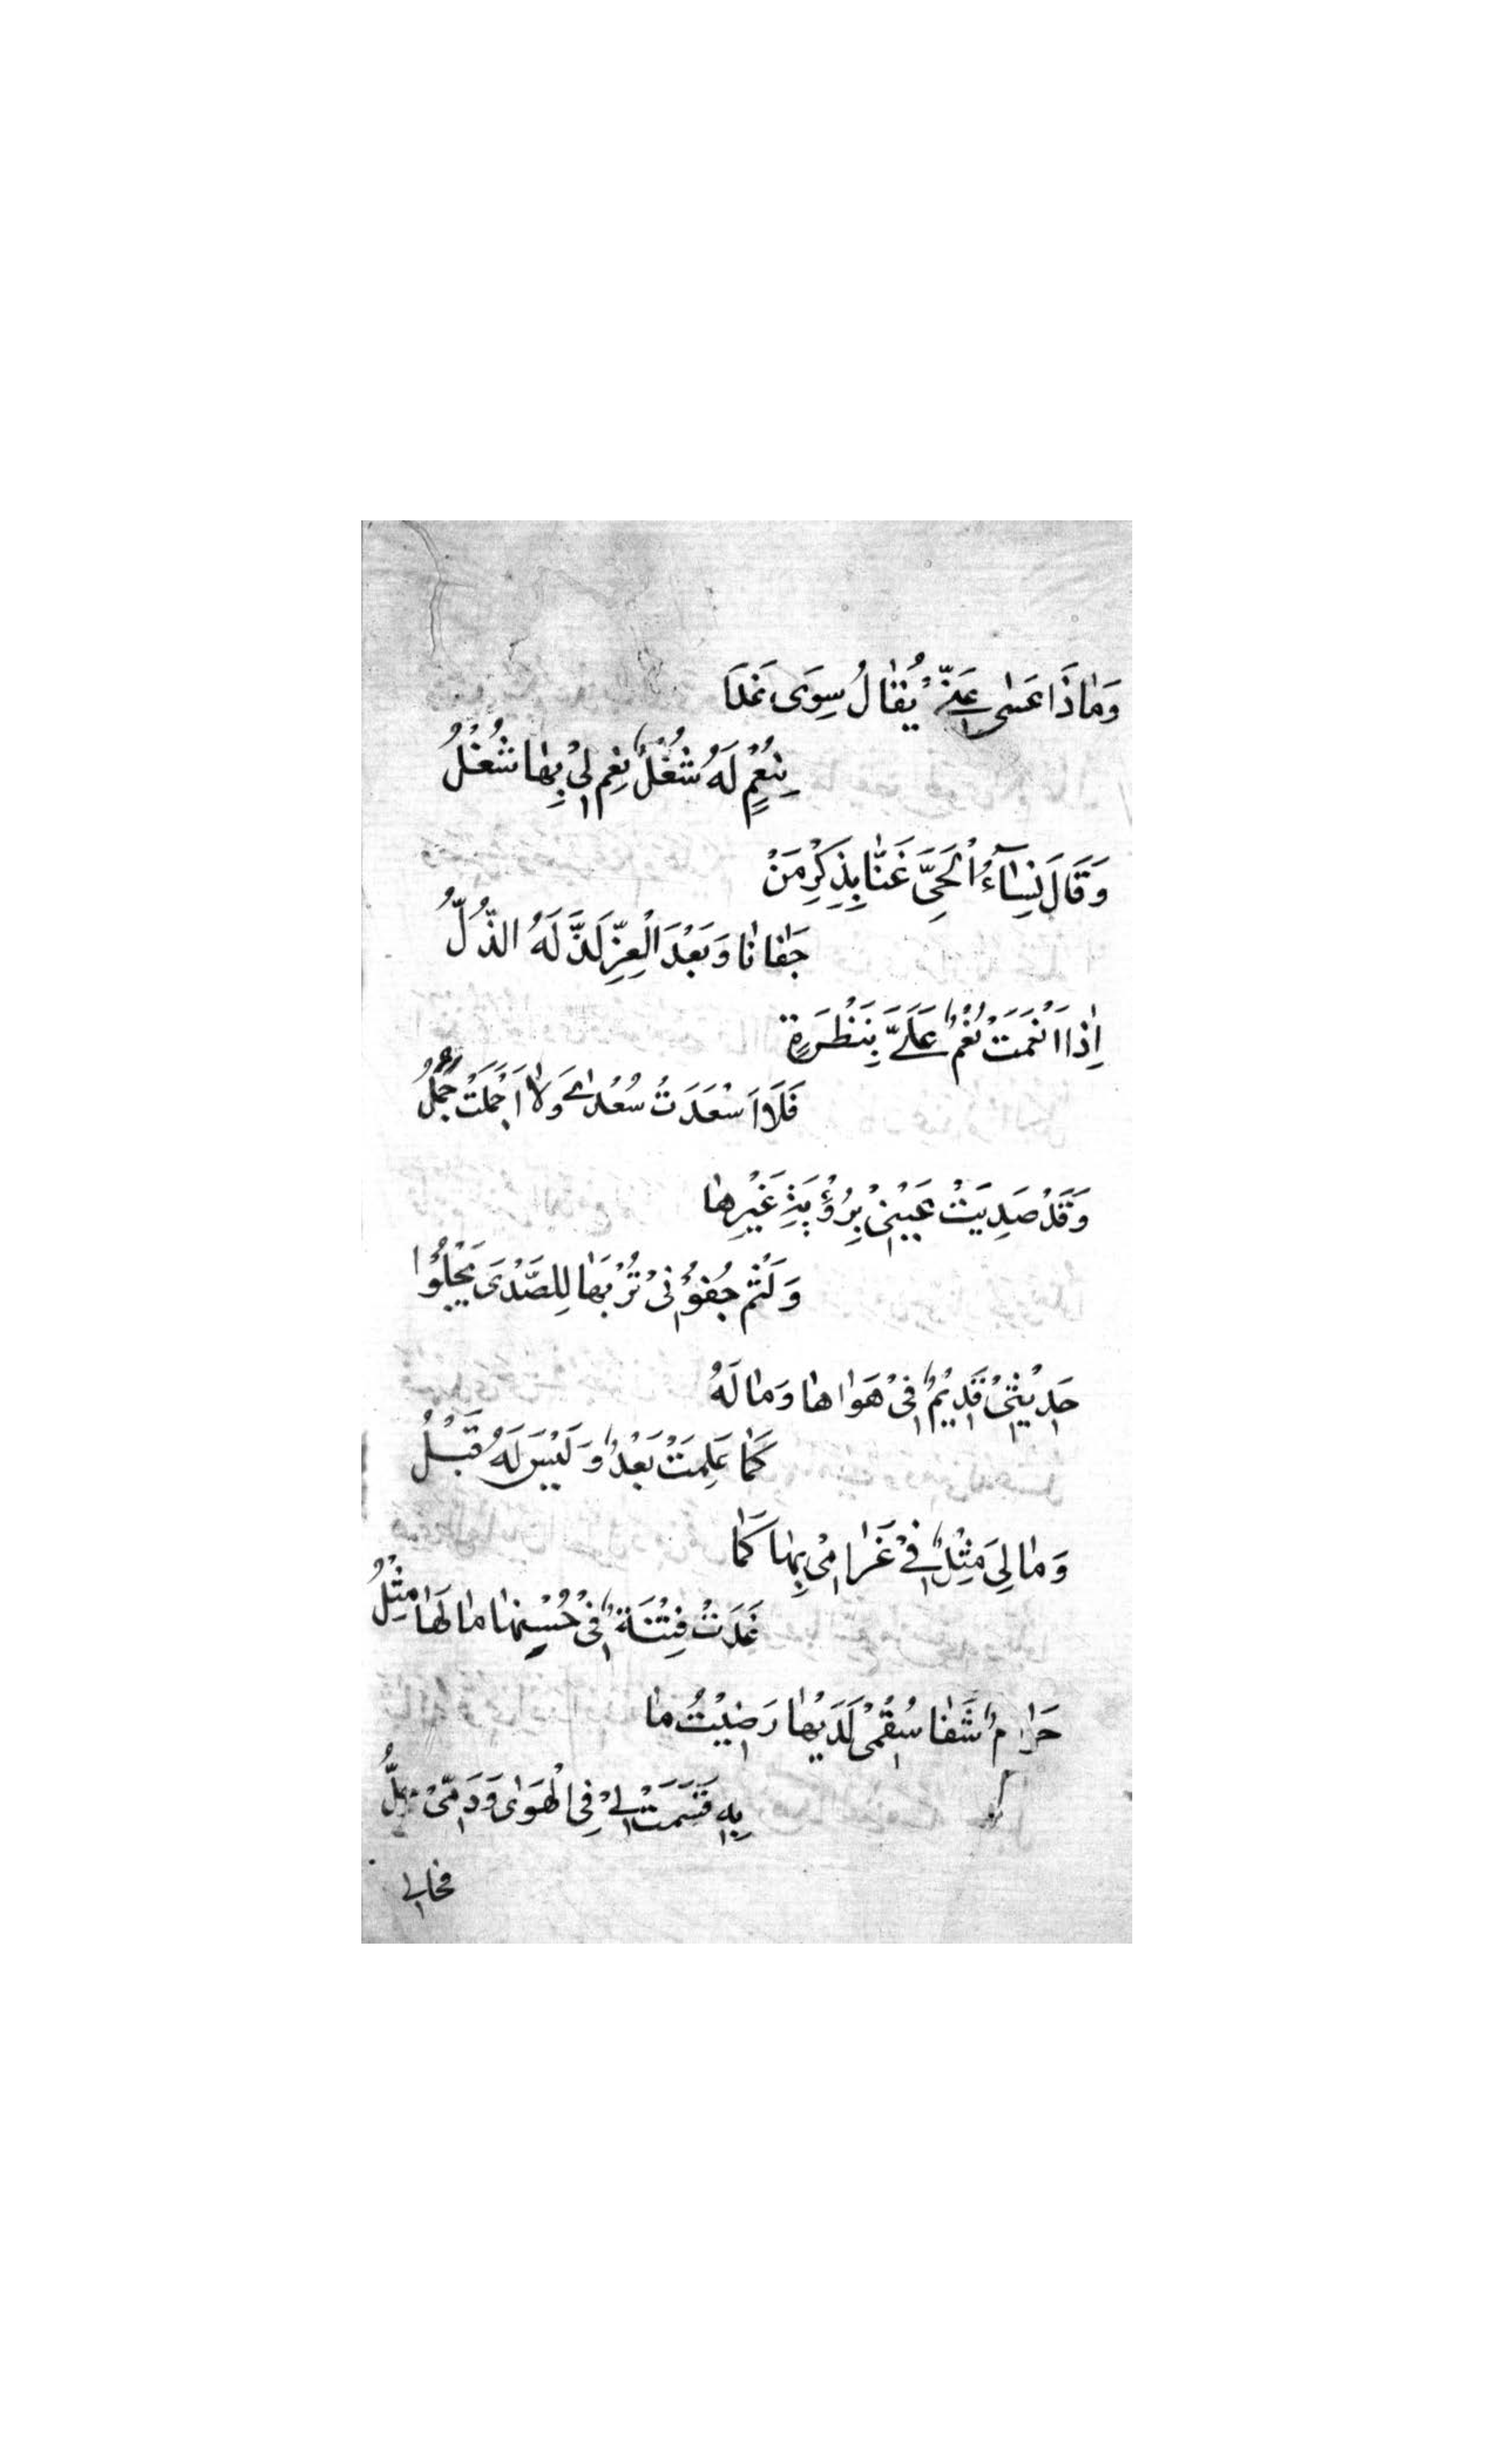 وَمَاذَا عَسٰى عَنِّي يُقَالُ سِوَى غَدَا
بِنُعْمٍ لَهُ شُغْلٌ نَعِم لِيْ بِهَا شُغْلُ
وَقَالَ نِسَآءُ الْحَيِّ عَنَّا بِذِكْرِ مَنْ
جَفَانَا وَبَعْدَ الْعِزِّ لَذَّ لَهُ الذُّلُّ
اِذَا اَنْعَمَتْ نُعْمٌ عَلَيَّ بِنَظْرَةٍ
فَلَا اَسْعَدَتْ سُعْدٰى وَلَا اَجْمَلَتْ جُمْلُ
وَقَدْ صَدِيَتْ عَيْنِيْ بِرُؤْيَةِ غَيْرِهَا
وَلَثْمُ جُفُوْنِيْ تُرْبَهَا لِلصَّدٰى يَجْلُوْا
حَدِيْثِيْ قَدِيْمٌ فِيْ هَوَاهَا وَمَا لَهُ
كَمَا عَلِمَتْ بَعْدٌ وَلَيْسَ لَهُ قَبْلُ
وَمَا لِيَ مِثْلٌ فِيْ غَرَامِيْ بِهَا كَمَا
غَدَتْ فِتْنَةٌ فِيْ حُسْنِهَا مَا لَهَا مِثْلُ
حَرَامٌ شَفَا سُقْمِيْ لَدَيْهَا رَضِيْتُ مَا
بِهِ قَسَمَتْ لِيْ فِي الْهَوٰى وَدَمِّيْ حِلُّ
فحالي